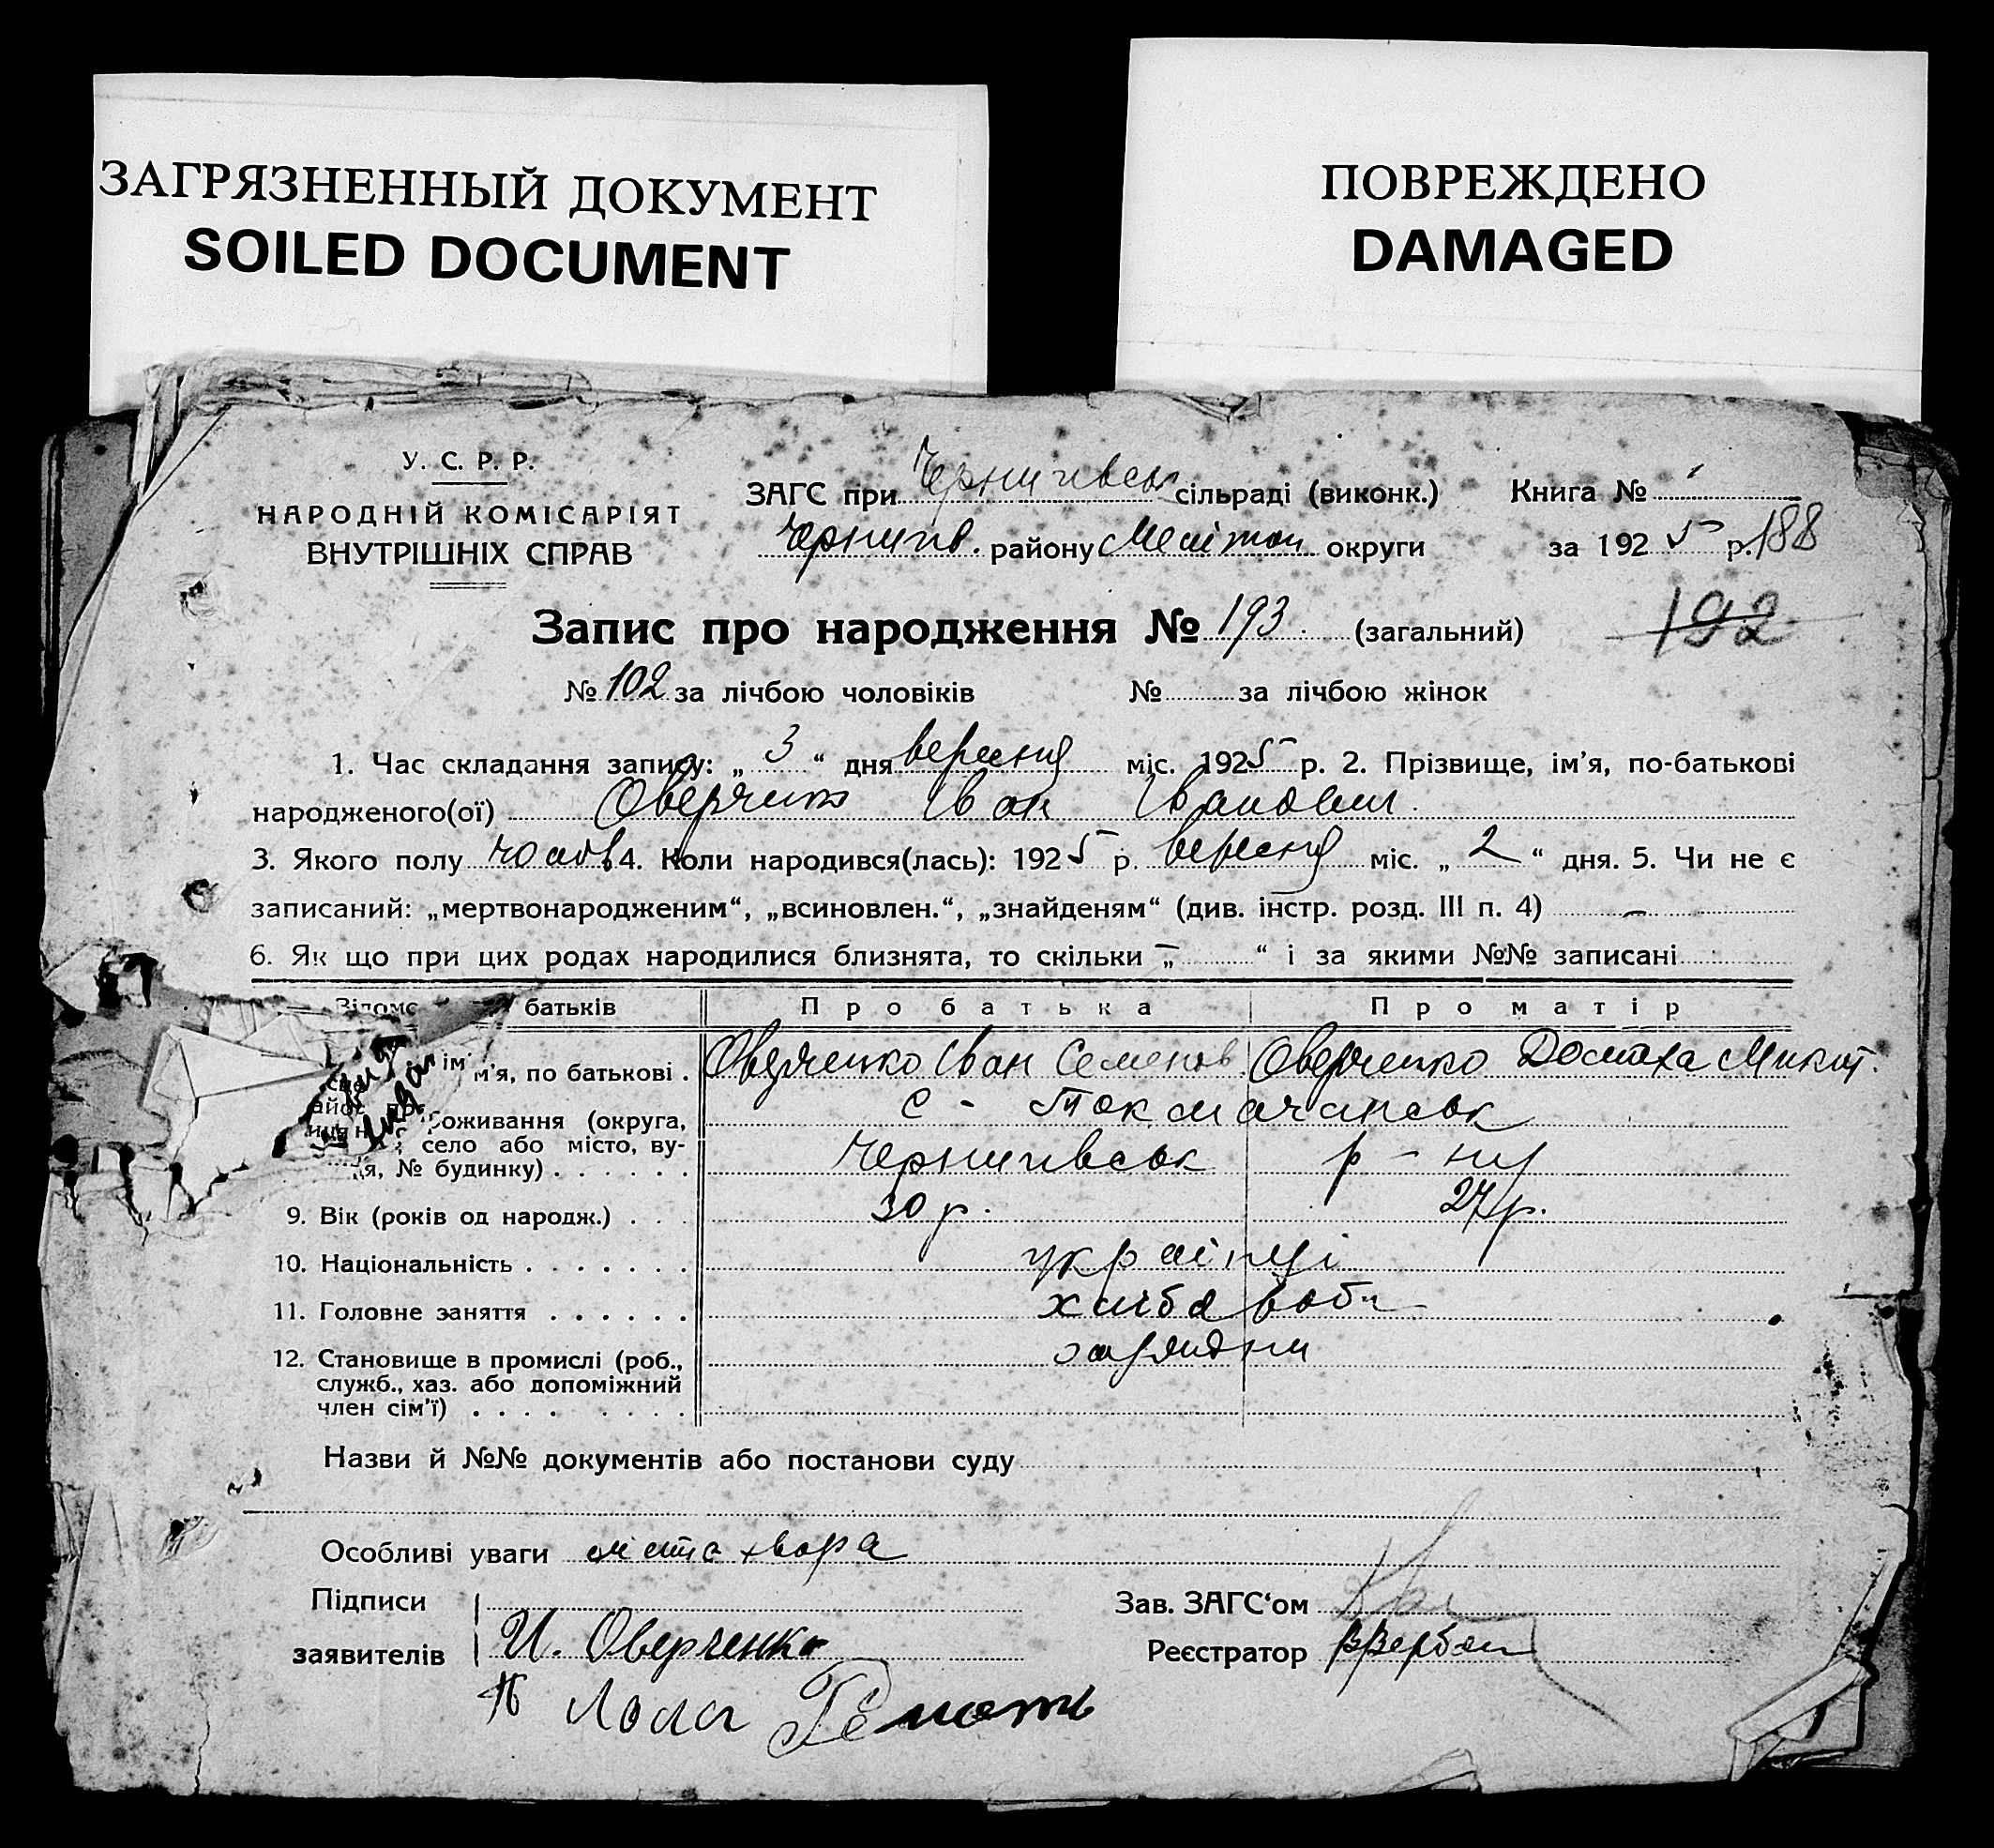 ЗАГРЯЗНЕННЫЙ ДОКУМЕНТ
SOILED DOCUMENT
ПОВРЕЖДЕНО
DAMAGED
У. С. Р. Р.
НАРОДНІЙ КОМІСАРІЯТ
ВНУТРІШНІХ СПРАВ
ЗАГС при Чернигівськ сільраді (виконк.) Книга №
Чернигів. району Меліт округи за 1925 р. 188
Запис про народження № 193 (загальний) 192
№ 102 за лічбою чоловіків № за лічбою жінок
1. Час складання запису: „ 3 “ дня вересня міс. 1925 р. 2. Прізвище, ім’я, по-батькові
народженого(ої) Оверченко Іван Іванович.
3. Якого полу чолов 4. Коли народився(лась): 1925 р. вересня міс. „ 2 “ дня. 5. Чи не є
записаний: „мертвонародженим“, „всиновлен.“, „знайденям“ (див. інстр. розд. III п. 4) –
6. Як що при цих родах народилися близнята, то скільки „ – “ і за якими №№ записані
батьків Про батька Про матір
ім’я, по батькові . Оверченко Іван Семенов. Оверченко Домаха Микит.
проживання (округа, с - Токмачанськ
село або місто, ву-
№ будинку) . . . . . . Чернигівськ р-ну
9. Вік (років од народж.) . . . 30 р. 27 р.
10. Національність . . . . . . . українці
11. Головне заняття . . . . . . хлібороби
12. Становище в промислі (роб.,
служб., хаз. або допоміжний
член сім’ї) . . . . . . . .
Назви й №№ документів або постанови суду
Особливі уваги мати хвора
Підписи Зав. ЗАГС‘ом
заявителів И. Оверченко Реєстратор